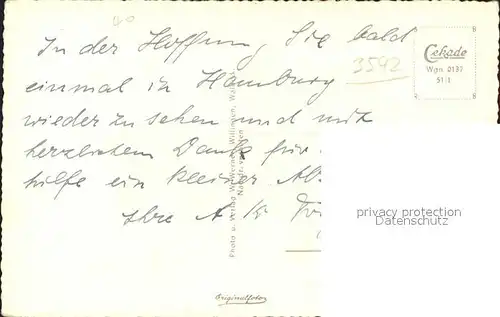 In der Hoffnung, Sie bald
einmal in Hamburg
wieder zu sehen und mit
herzlichem Dank für
hilfe ein kleiner
Ihre A K
3592
Cekade
Wgn. 0137
51/1
Photo u. Verlag W. Werner, Willingen, Waldeck
privacy protection
Datenschutz
Originalfoto